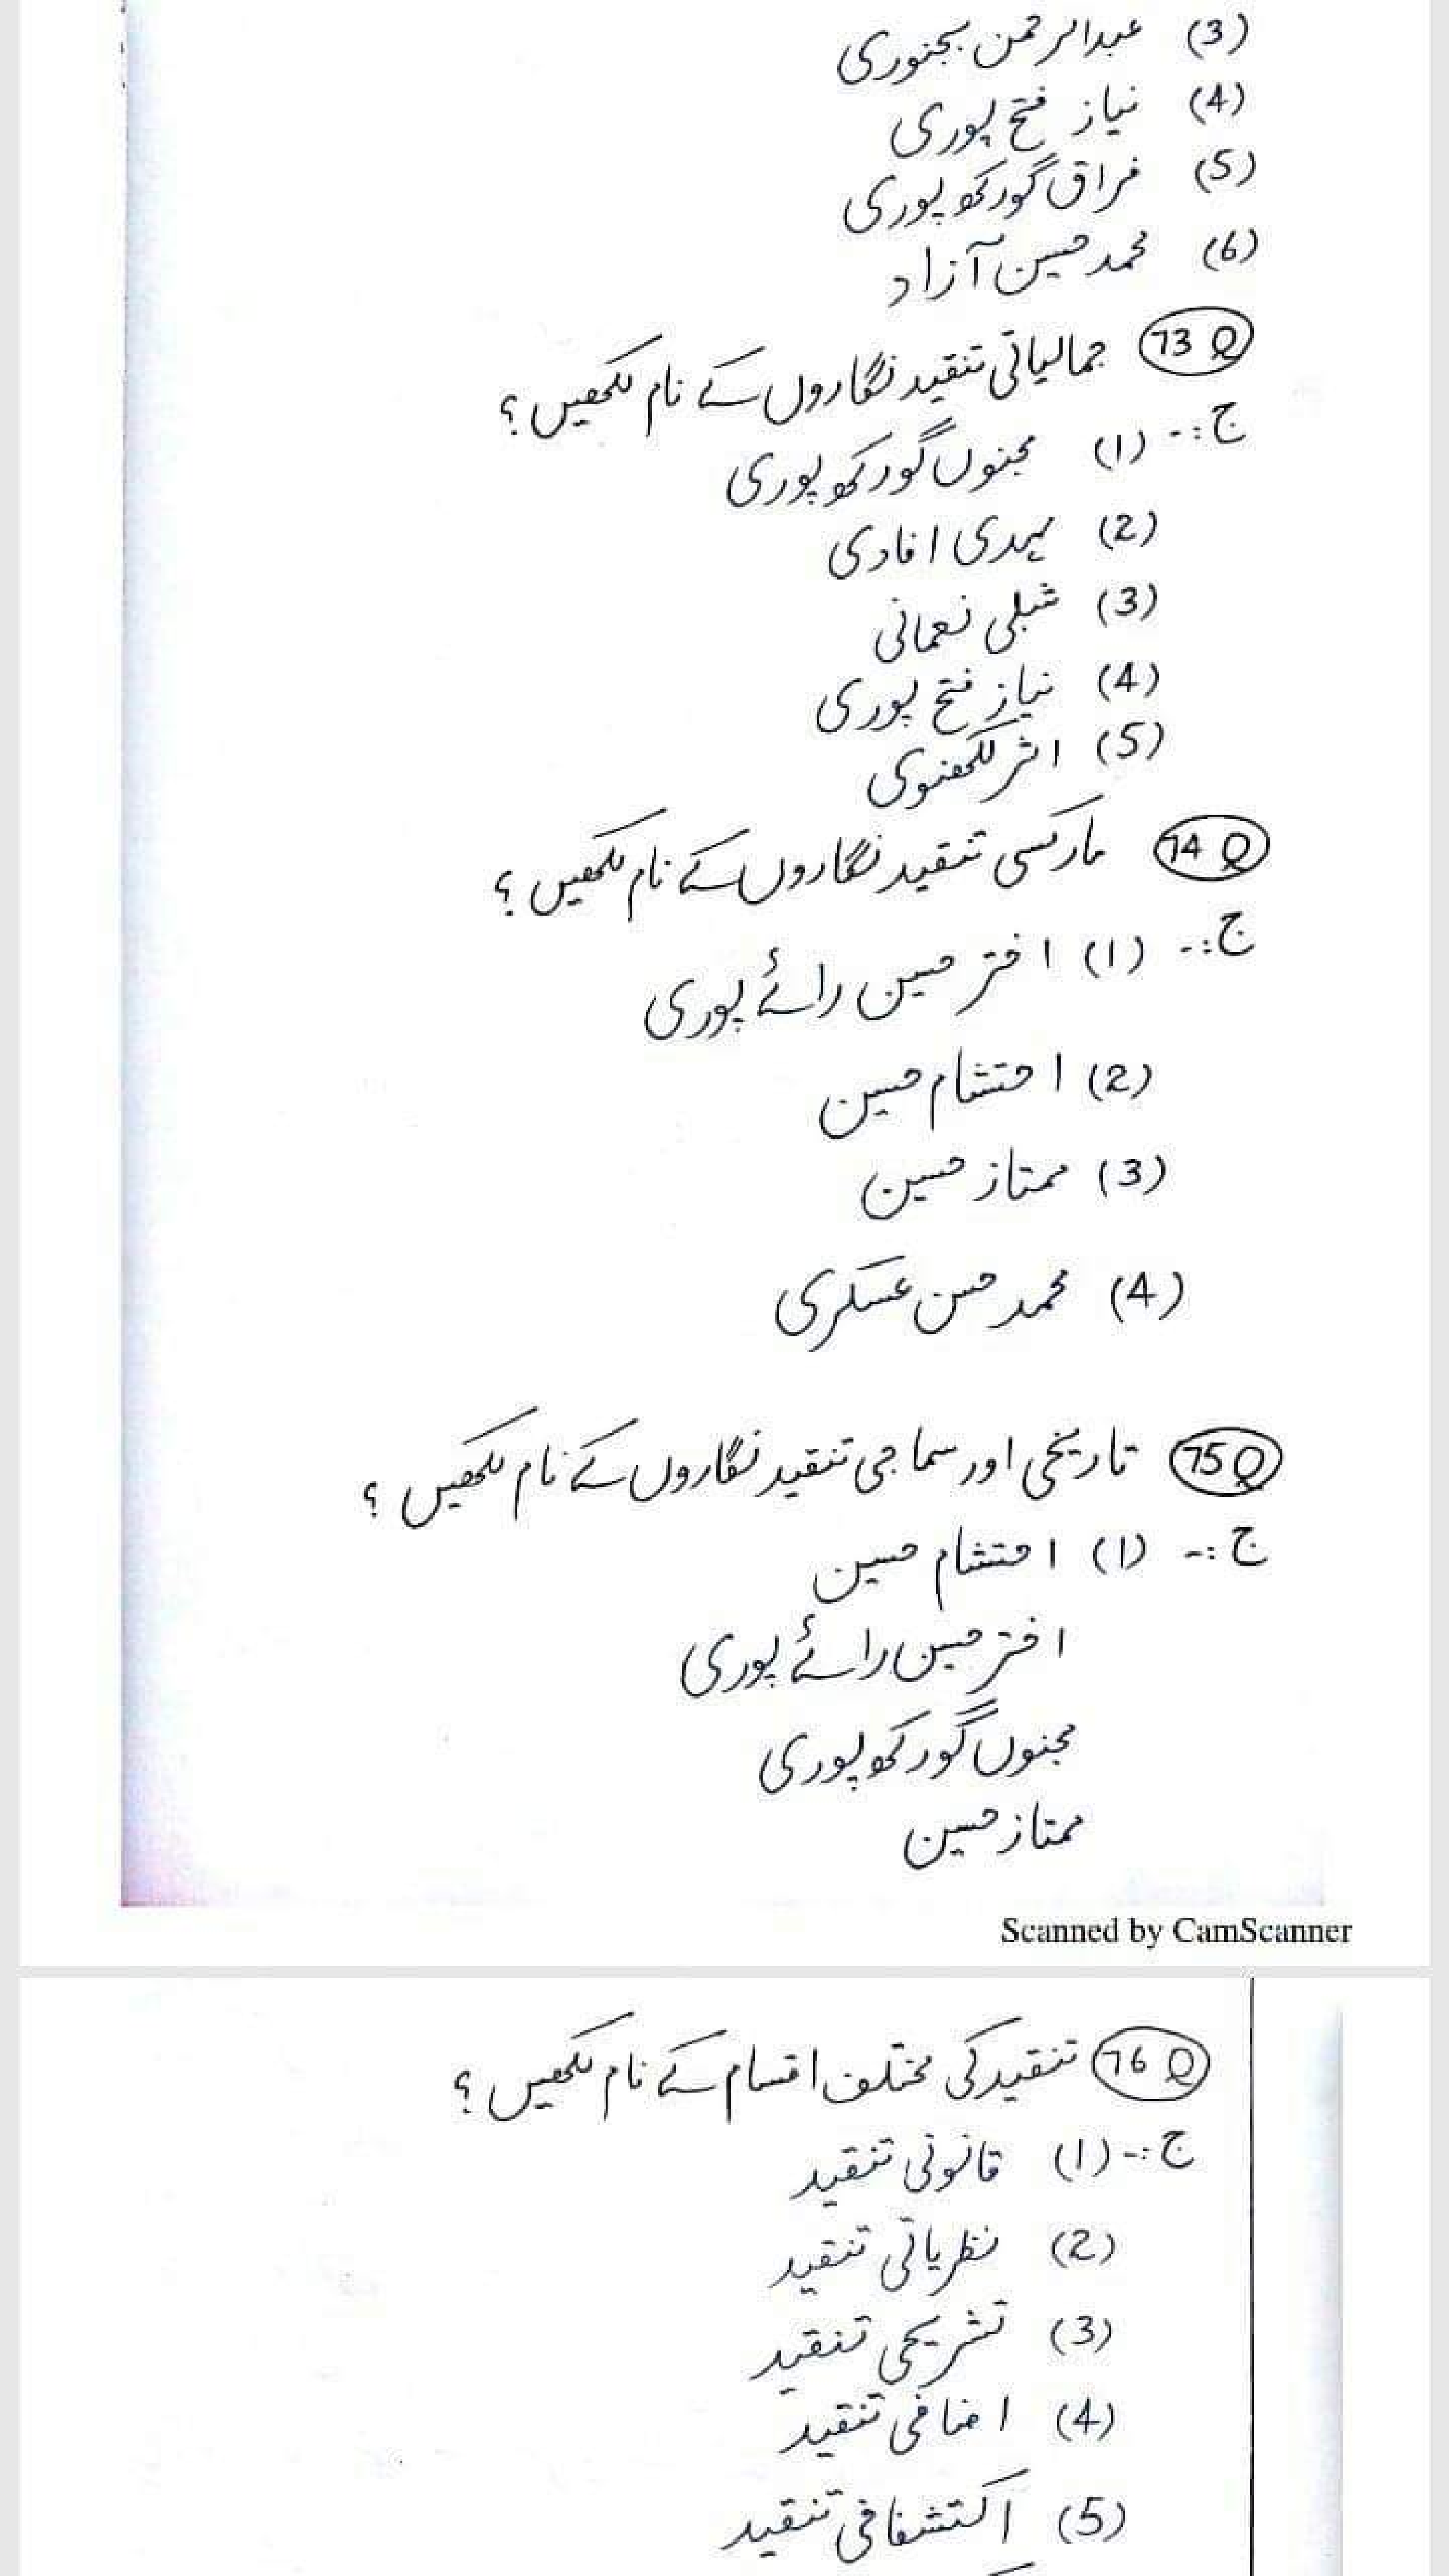 (3) عبدالرحمن بجنوری
(4) نیاز فتح پوری
(5) فراق گورکھ پوری
(6) محمد حسین آزاد
Q 73 جمالیاتی تنقید نگاروں کے نام لکھیں؟
ج:۔ (1) مجنوں گورکھ پوری
(2) مہدی افادی
(3) شبلی نعمانی
(4) نیاز فتح پوری
(5) اثر لکھنوی
Q 74 مارکسی تنقید نگاروں کے نام لکھیں؟
ج:۔ (1) اختر حسین رائے پوری
(2) احتشام حسین
(3) ممتاز حسین
(4) محمد حسن عسکری
Q 75 تاریخی اور سماجی تنقید نگاروں کے نام لکھیں؟
ج:۔ (1) احتشام حسین
اختر حسین رائے پوری
مجنوں گورکھ پوری
ممتاز حسین
Scanned by CamScanner
Q 76 تنقید کی مختلف اقسام کے نام لکھیں؟
ج:۔ (1) قانونی تنقید
(2) نظریاتی تنقید
(3) تشریحی تنقید
(4) اضافی تنقید
(5) اکتشفافی تنقید